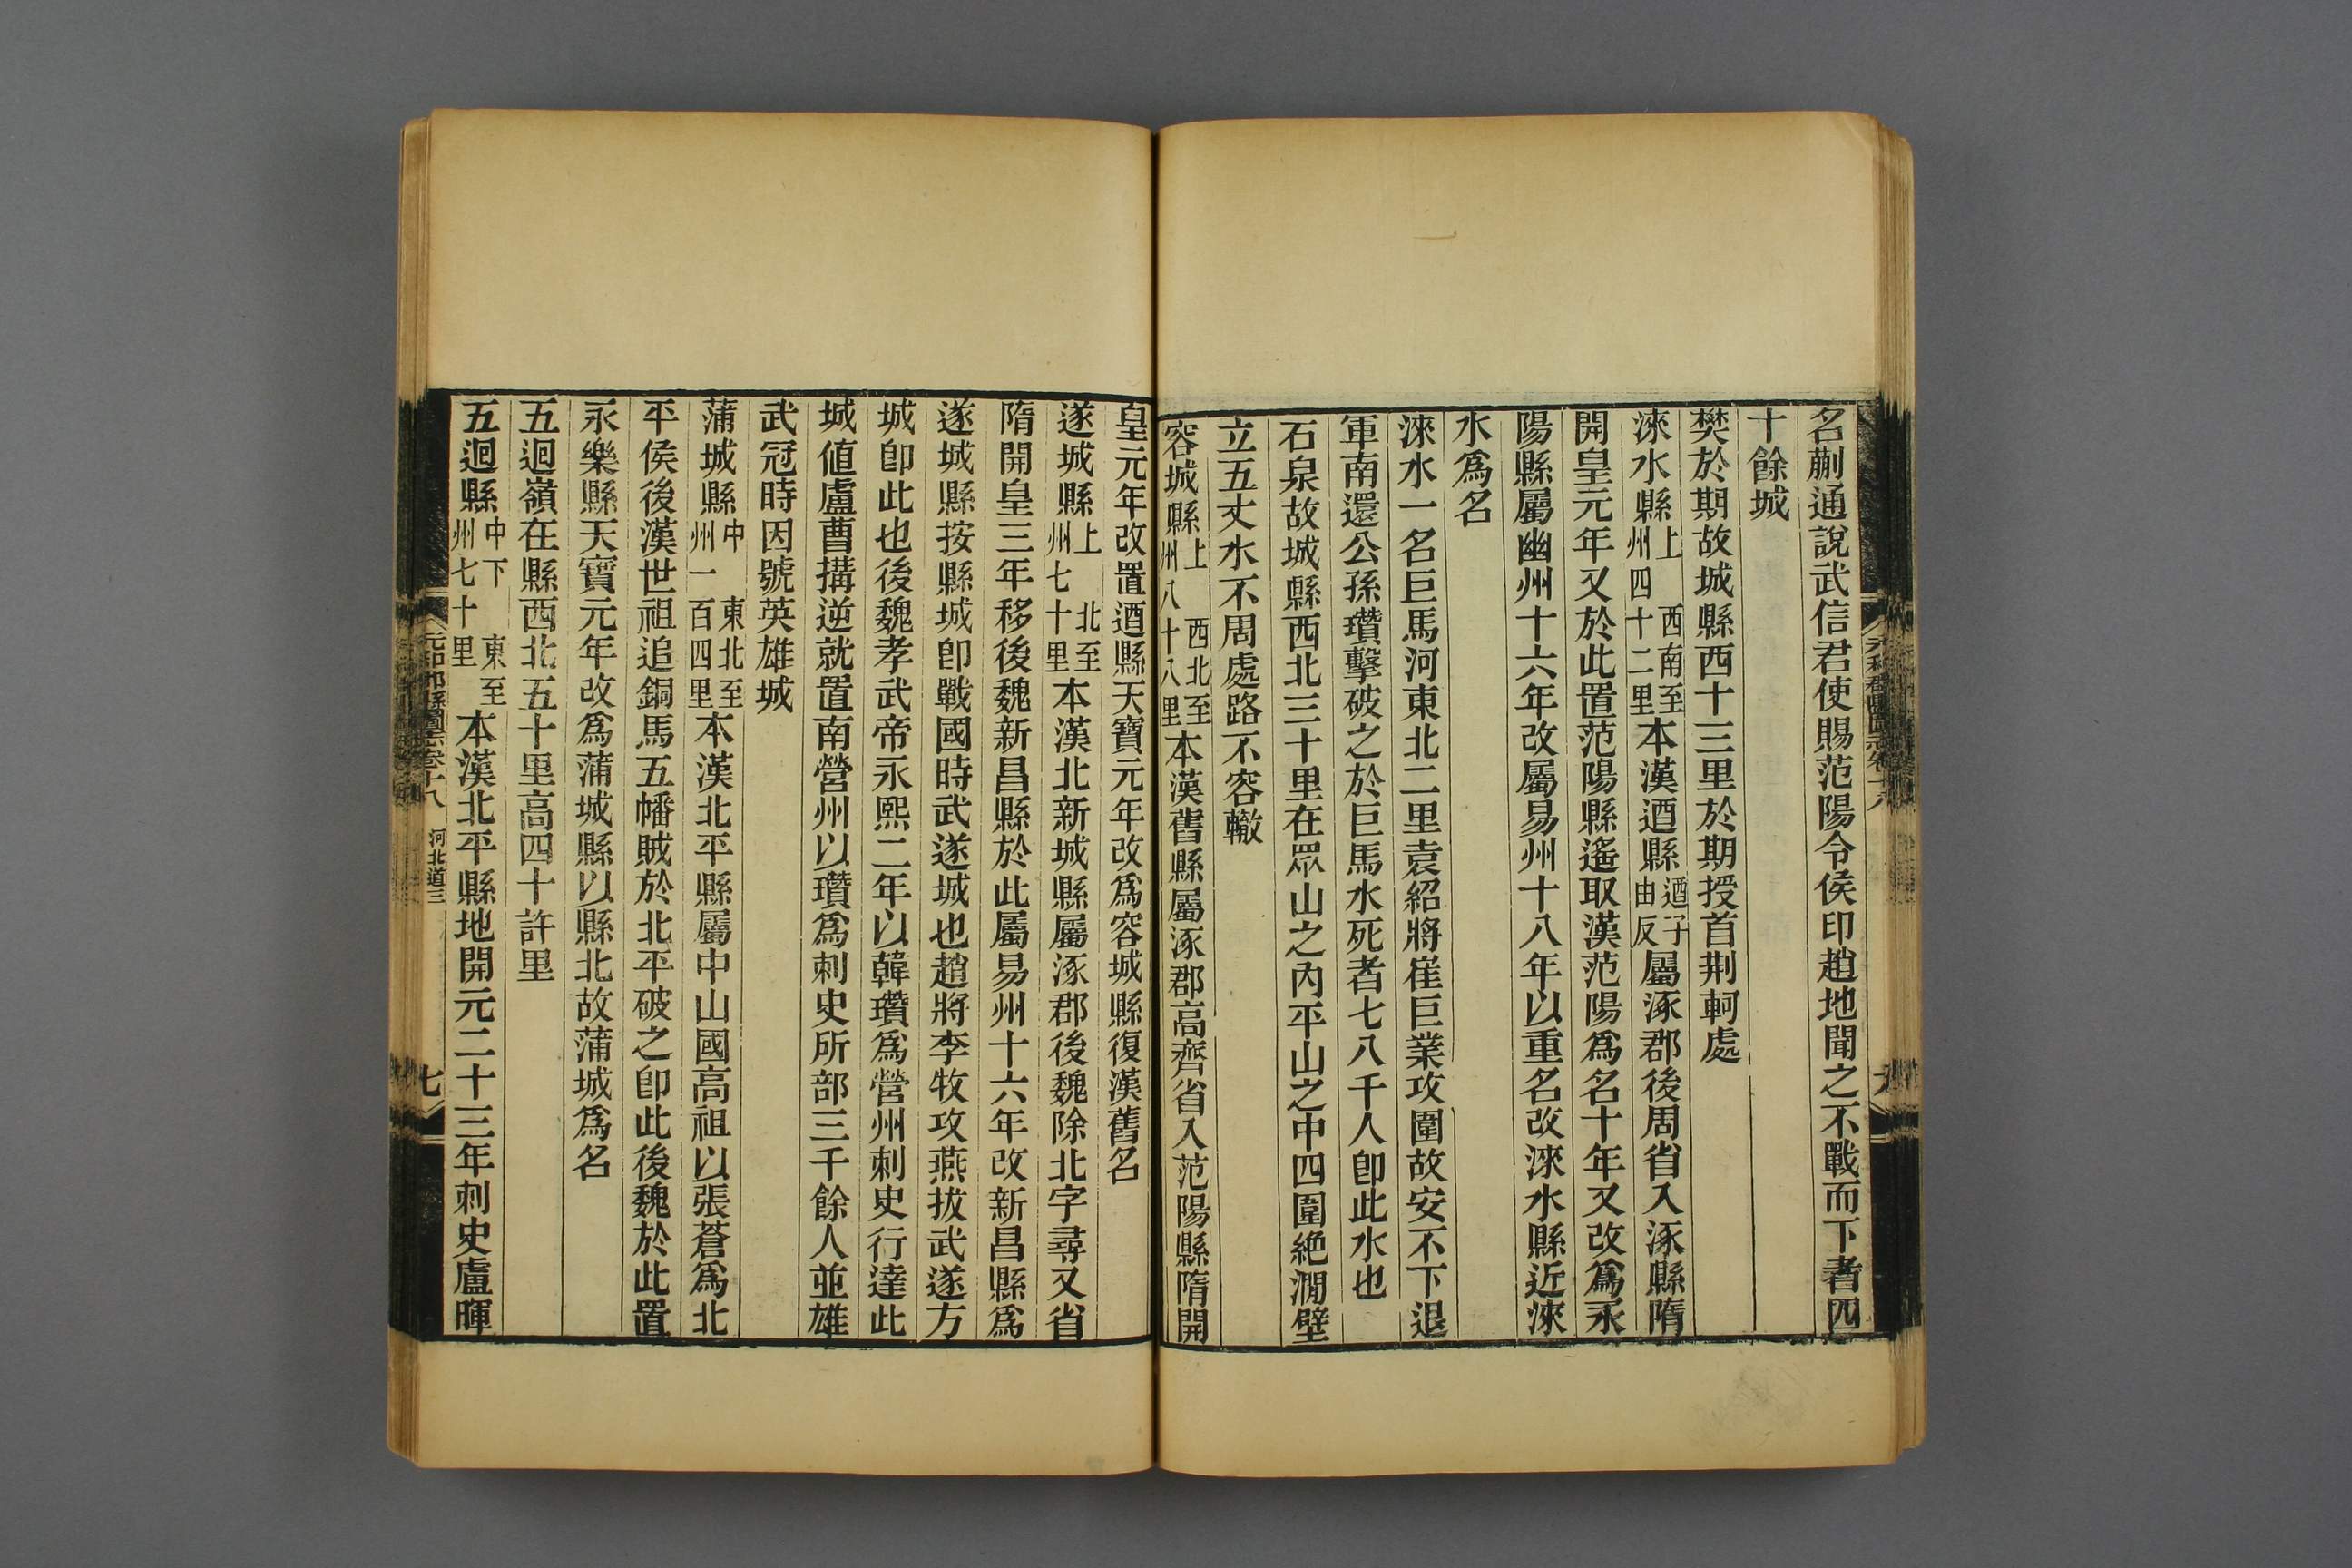 名蒯通說武信君使賜范陽令侯印趙地聞之不戰而下者四
十餘城
樊於期故城縣西十三里於期授首荆軻處
淶水縣上 西南至州四十二里本漢遒縣遒子由反屬涿郡後周省入涿縣隋
開皇元年又於此置范陽縣遙取漢范陽爲名十年又改爲永
陽縣屬幽州十六年改屬易州十八年以重名改淶水縣近淶
水爲名
淶水一名巨馬河東北二里袁紹將崔巨業攻圍故安不下退
軍南還公孫瓚擊破之於巨馬水死者七八千人卽此水也
石泉故城縣西北三十里在眾山之內平山之中四圍絶澗壁
立五丈水不周處路不容轍
容城縣上 西北至州八十八里本漢舊縣屬涿郡高齊省入范陽縣隋開
皇元年改置遒縣天寶元年改爲容城縣復漢舊名
遂城縣上 北至州七十里本漢北新城縣屬涿郡後魏除北字尋又省
隋開皇三年移後魏新昌縣於此屬易州十六年改新昌縣爲
遂城縣按縣城卽戰國時武遂城也趙將李牧攻燕拔武遂方
城卽此也後魏孝武帝永熙二年以韓瓚爲營州刺史行達此
城値盧曹搆逆就置南營州以瓚爲刺史所部三千餘人並雄
武冠時因號英雄城
蒲城縣中 東北至州一百四里本漢北平縣屬中山國高祖以張蒼爲北
平侯後漢世祖追銅馬五幡賊於北平破之卽此後魏於此置
永樂縣天寶元年改爲蒲城縣以縣北故蒲城爲名
五迴嶺在縣西北五十里高四十許里
五迴縣中下 東至州七十里本漢北平縣地開元二十三年刺史盧暉
元和郡縣圖志卷十八 河北道三
七